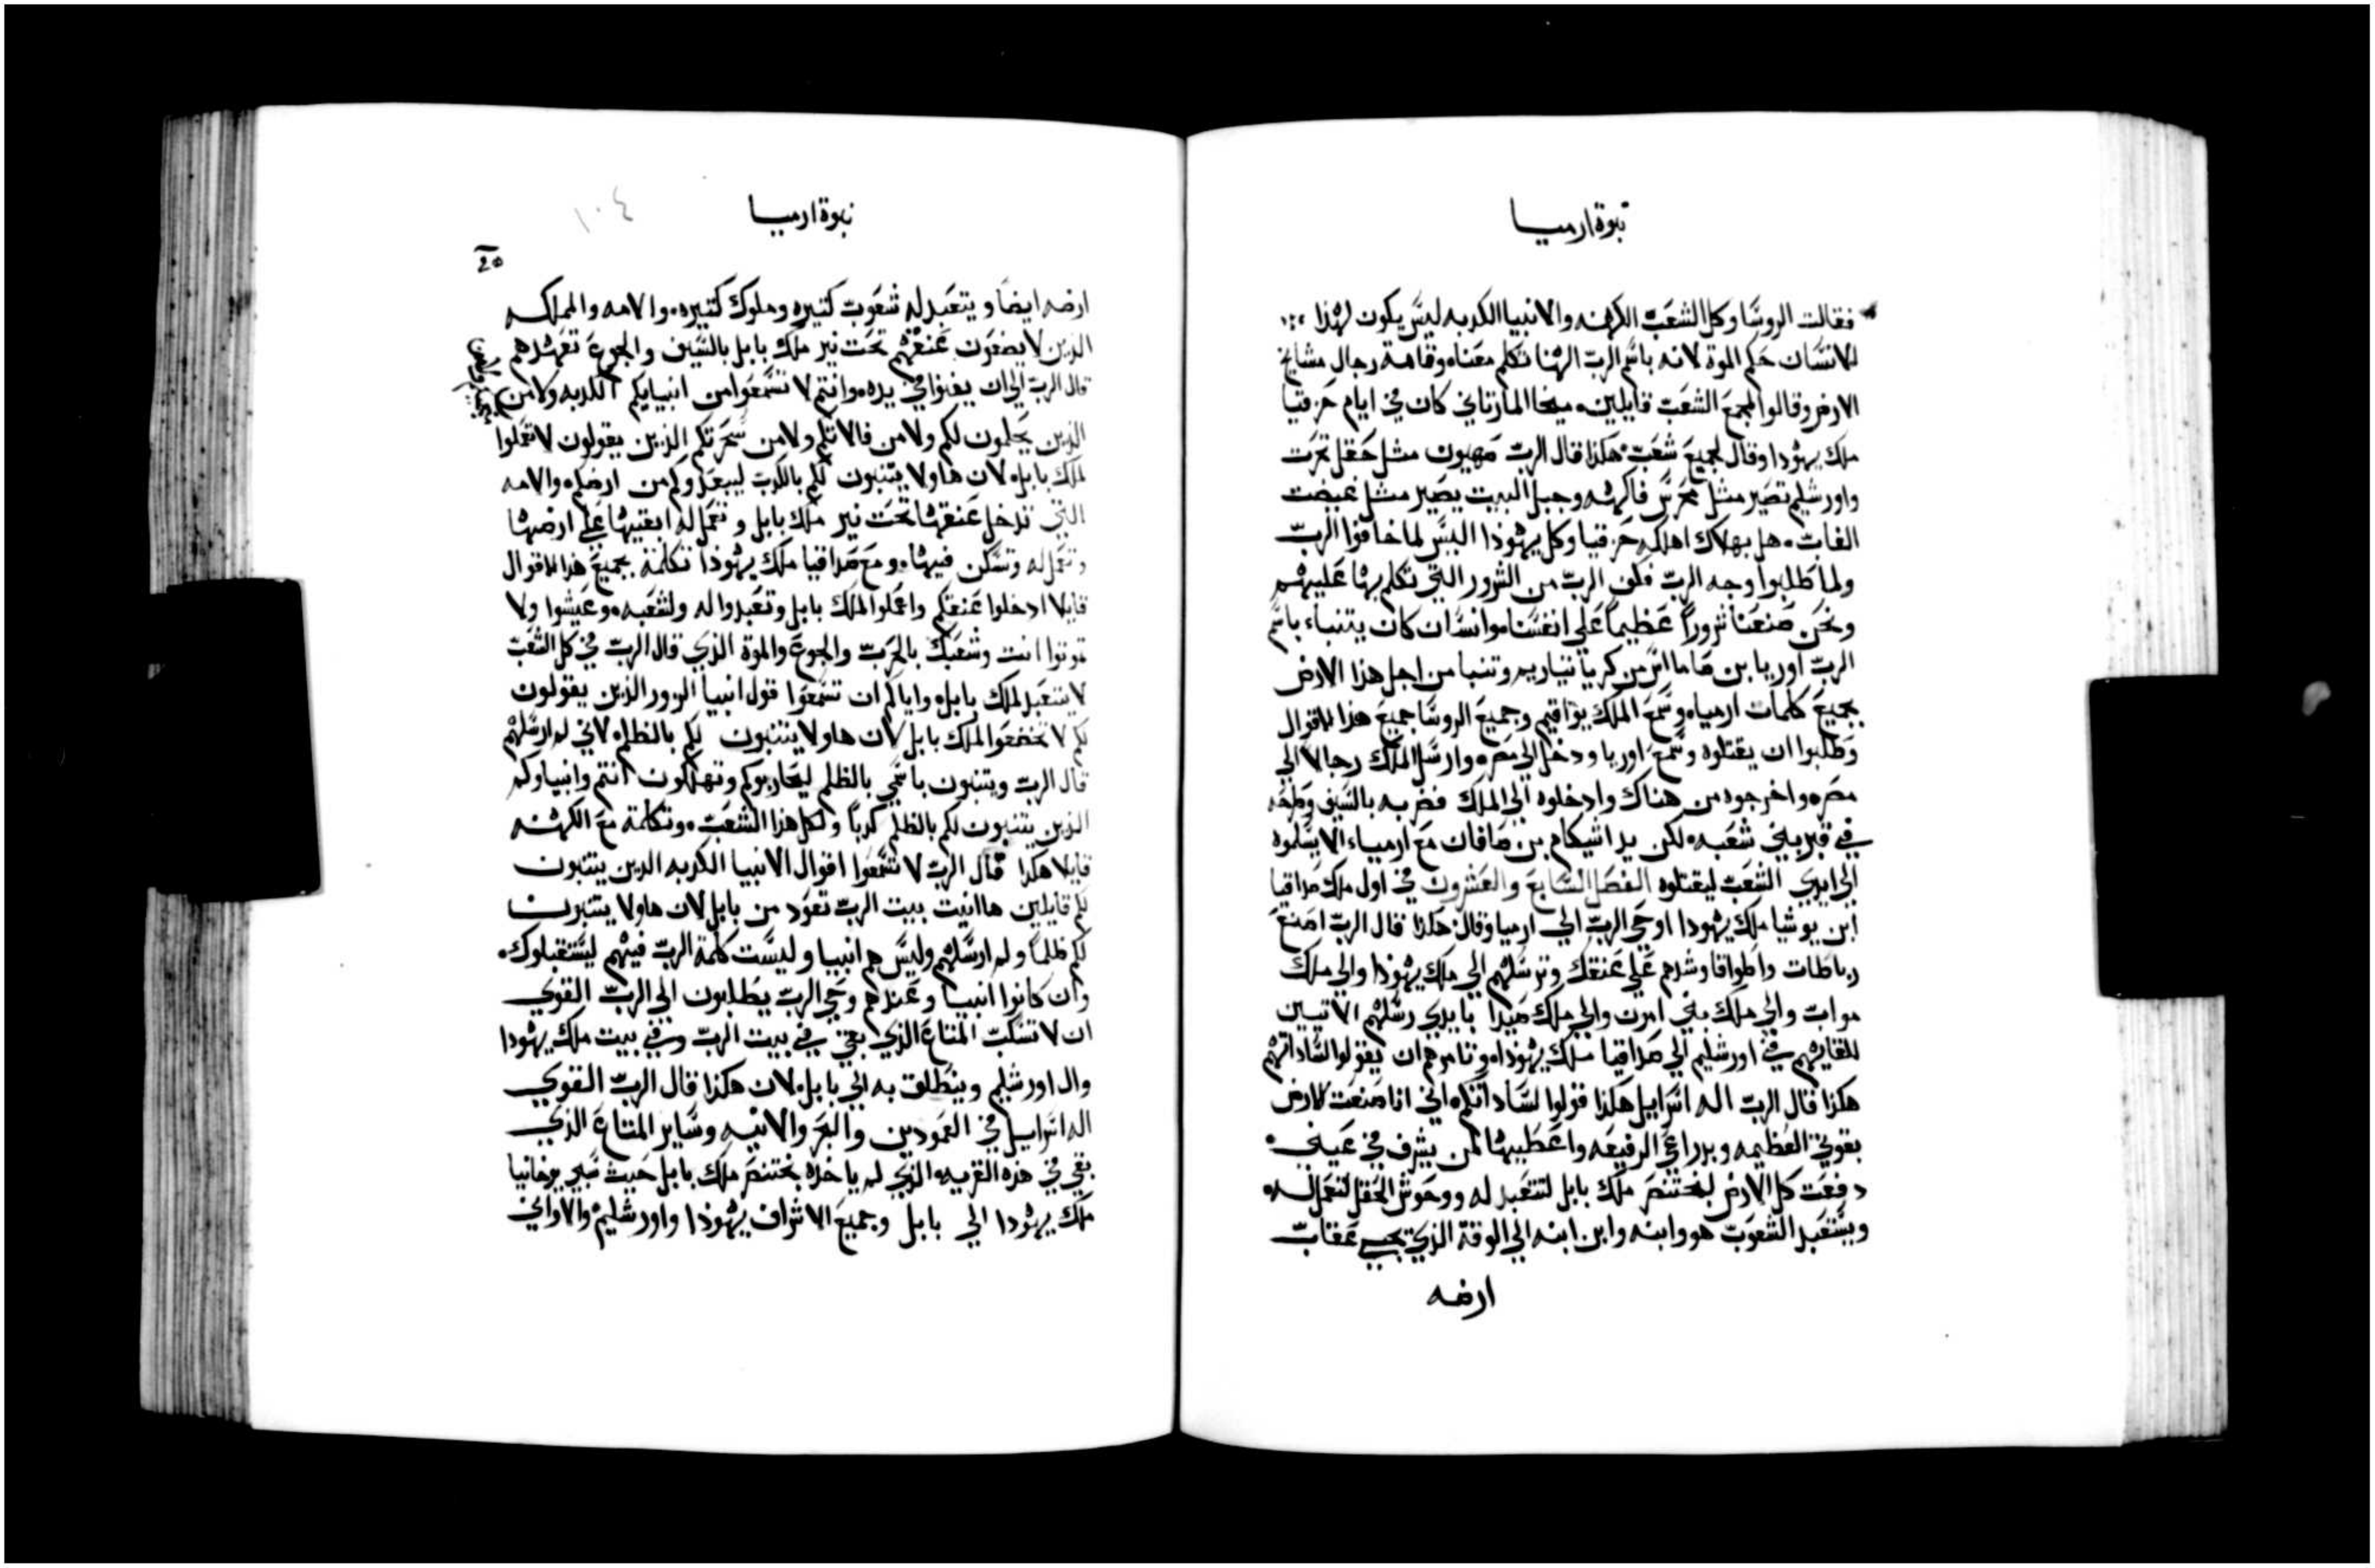 نبوة ارميا
فقالت الروسا وكل الشعب الكهنه والانبيا الكدبه ليس يكون لهذا
الانسان حكم الموة لانه باسم الرب الهنا تكلم معنا وقامة رجال مشايخ
الارض وقالوا لجمع الشعب قايلين ميخا المارتاني كان في ايام حزقيا
ملك يهودا وقال لجميع شعب هكذا قال الرب صهيون مثل حقل تحرت
واورشليم تصير مثل محرس فاكهه وجبل البيت يصير مثل غيضت
الغاب هل بهلاك اهلكه حزقيا وكل يهوذا اليس لما خافوا الرب
ولما طلبوا وجه الرب فكف الرب من الشرور التي تكلم بها عليهم
ونحن صنعنا شروراً عظيماً علي انفسنا وانسان كان يتنباء باسم
الرب اوريا بن صاما اس من كرياتياريم وتنبا من اجل هذا الارض
بجميع كلمات ارميا وسمع الملك يواقيم وجميع الروسا جميع هذا الاقوال
وطلبوا ان يقتلوه وسمع اوريا ودخل الي مصر وارسل الملك رجالا الي
مصر واخرجوه من هناك وادخلوه الي الملك فضربه بالسيف وطرحه
في قبر بني شعبه لكن يد اشيكام بن صافان مع ارمياء الا يسلموه
الي ايدي الشعب ليقتلوه الفصل السابع والعشرون في اول ملك صداقيا
ابن يوشيا ملك يهودا اوحي الرب الي ارميا وقال هكذا قال الرب اصنع
رباطات واطواقا وشدهم علي عنقك وترسلهم الي ملك يهوذا والي ملك
مواب والي ملك بني امون والي ملك صيدا بايدي رسلهم الاتيين
للقايهم في اورشليم الي صداقيا ملك يهوذا وتامرهم ان يقولوا لساداتهم
هكذا قال الرب اله اسراييل هكذا قولوا لساداتكم اني انا صنعت الارض
بقوتي العظيمه وبدراعي الرفيعه واعطيها لمن يشرف في عيني
دفعت كل الارض لبختنصر ملك بابل لتتعبد له ووحوش الحقل لتعمل له
ويستعبد الشعوب هو وابنه وابن ابنه الي الوقة الذي تجي عقاب
ارضه
نبوة ارميا
١٠٤
ارضه ايضاً ويتعبد له شعوب كتيره وملوك كتيره والامه والمملكه
الذين لا يضعون عنقهم تحت نير ملك بابل بالسيف والجوع تعهدهم
قال الرب الي ان يفنوا في يده وانتم لا تسمعوا من انبيايكم الكدبه ولا من
الذين يحلمون لكم ولا من فالاتكم ولا من سحرتكم الذين يقولون لا تعملوا
لملك بابل لان هاولا يتنبون لكم بالكدب ليبعدوكم من ارضكم والامه
التي تدخل عنقها تحت نير ملك بابل وتعمل له ابقيها علي ارضها
وتعمل له وتسكن فيها ومع صداقيا ملك يهوذا تكلمة بجميع هذا الاقوال
قايلا ادخلوا عنقكم واعملوا الملك بابل وتعبدوا له ولشعبه وعيشوا ولا
تموتوا انت وشعبك بالحرب والجوع والموة الذي قال الرب في كل الشعب
لا يتعبد لملك بابل واياكم ان تسمعوا قول انبيا الزور الذين يقولون
لكم لا تخضعوا الملك بابل لان هاولا يتنبون لكم بالظلم لاني لم ارسلهم
قال الرب ويتنبون باسمي بالظلم ليحاربوكم وتهلكون انتم وانبياوكم
الذين يتنبون لكم بالظلم كدباً ولكل هذا الشعب وتكلمة مع الكهنه
قايلا هكذا قال الرب لا تسمعوا اقوال الانبيا الكدبه الدين يتنبون
لكم قايلين ها انيت بيت الرب تعود من بابل لان هاولا يتنبون
لكم ظلماً ولم ارسلهم وليس هم انبيا وليست كلمة الرب فيهم ليستقبلوك
وان كانوا انبيا وعندهم وحي الرب يطلبون الي الرب القوي
ان لا تسكب المتاع الذي بقي في بيت الرب وفي بيت ملك يهودا
وال اورشليم وينطلق به الي بابل لان هكذا قال الرب القوي
اله اسراييل في العمودين والبحر والانيه وساير المتاع الذي
بقي في هذه القريه الذي لم ياخذه بختنصر ملك بابل حيث سبي يوخانيا
ملك يهودا الي بابل وجميع الاشراف يهوذا واورشليم والاواني